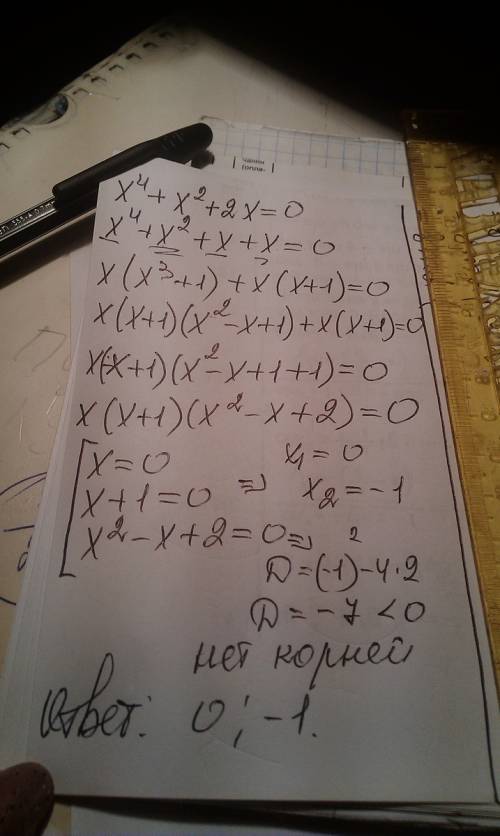 чании
(опла-
x⁴ + x² + 2x = 0
x⁴ + x² + x + x = 0
x(x³ + 1) + x(x+1) = 0
x(x+1)(x² - x + 1) + x(x+1) = 0
x(x+1)(x² - x + 1 + 1) = 0
x(x+1)(x² - x + 2) = 0
x = 0 x₁ = 0
x + 1 = 0 ⇒ x₂ = -1
x² - x + 2 = 0 ⇒
D = (-1)² - 4·2
D = -7 < 0
нет корней
Ответ: 0; -1.